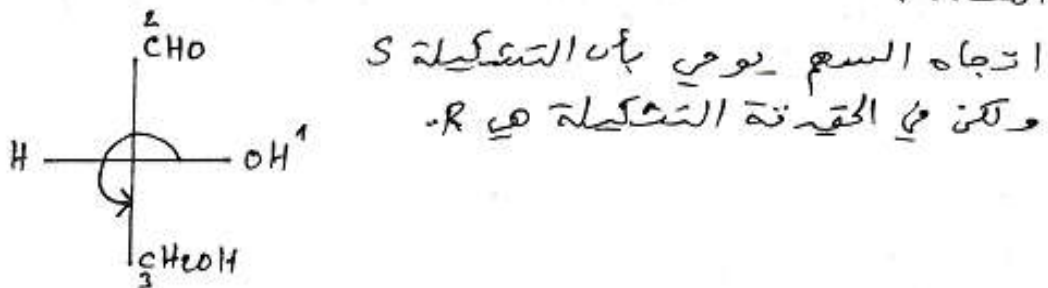 2
CHO
اتجاه السهم يوحي بأن التشكيلة S
ولكن في الحقيقة التشكيلة هي R.
H OH 1
CH2OH
3